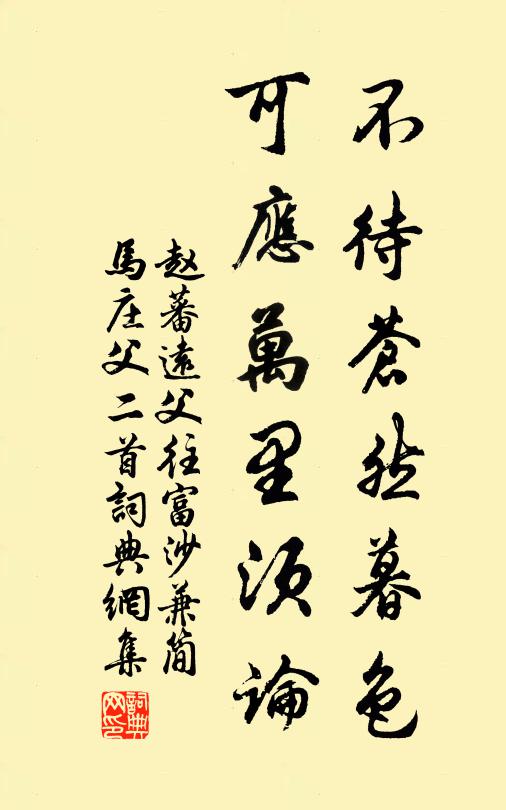 不待蒼然暮色
可應萬里須論
赵蕃遠父往富沙兼简
馬庄父二首詞典網集
詞典网印